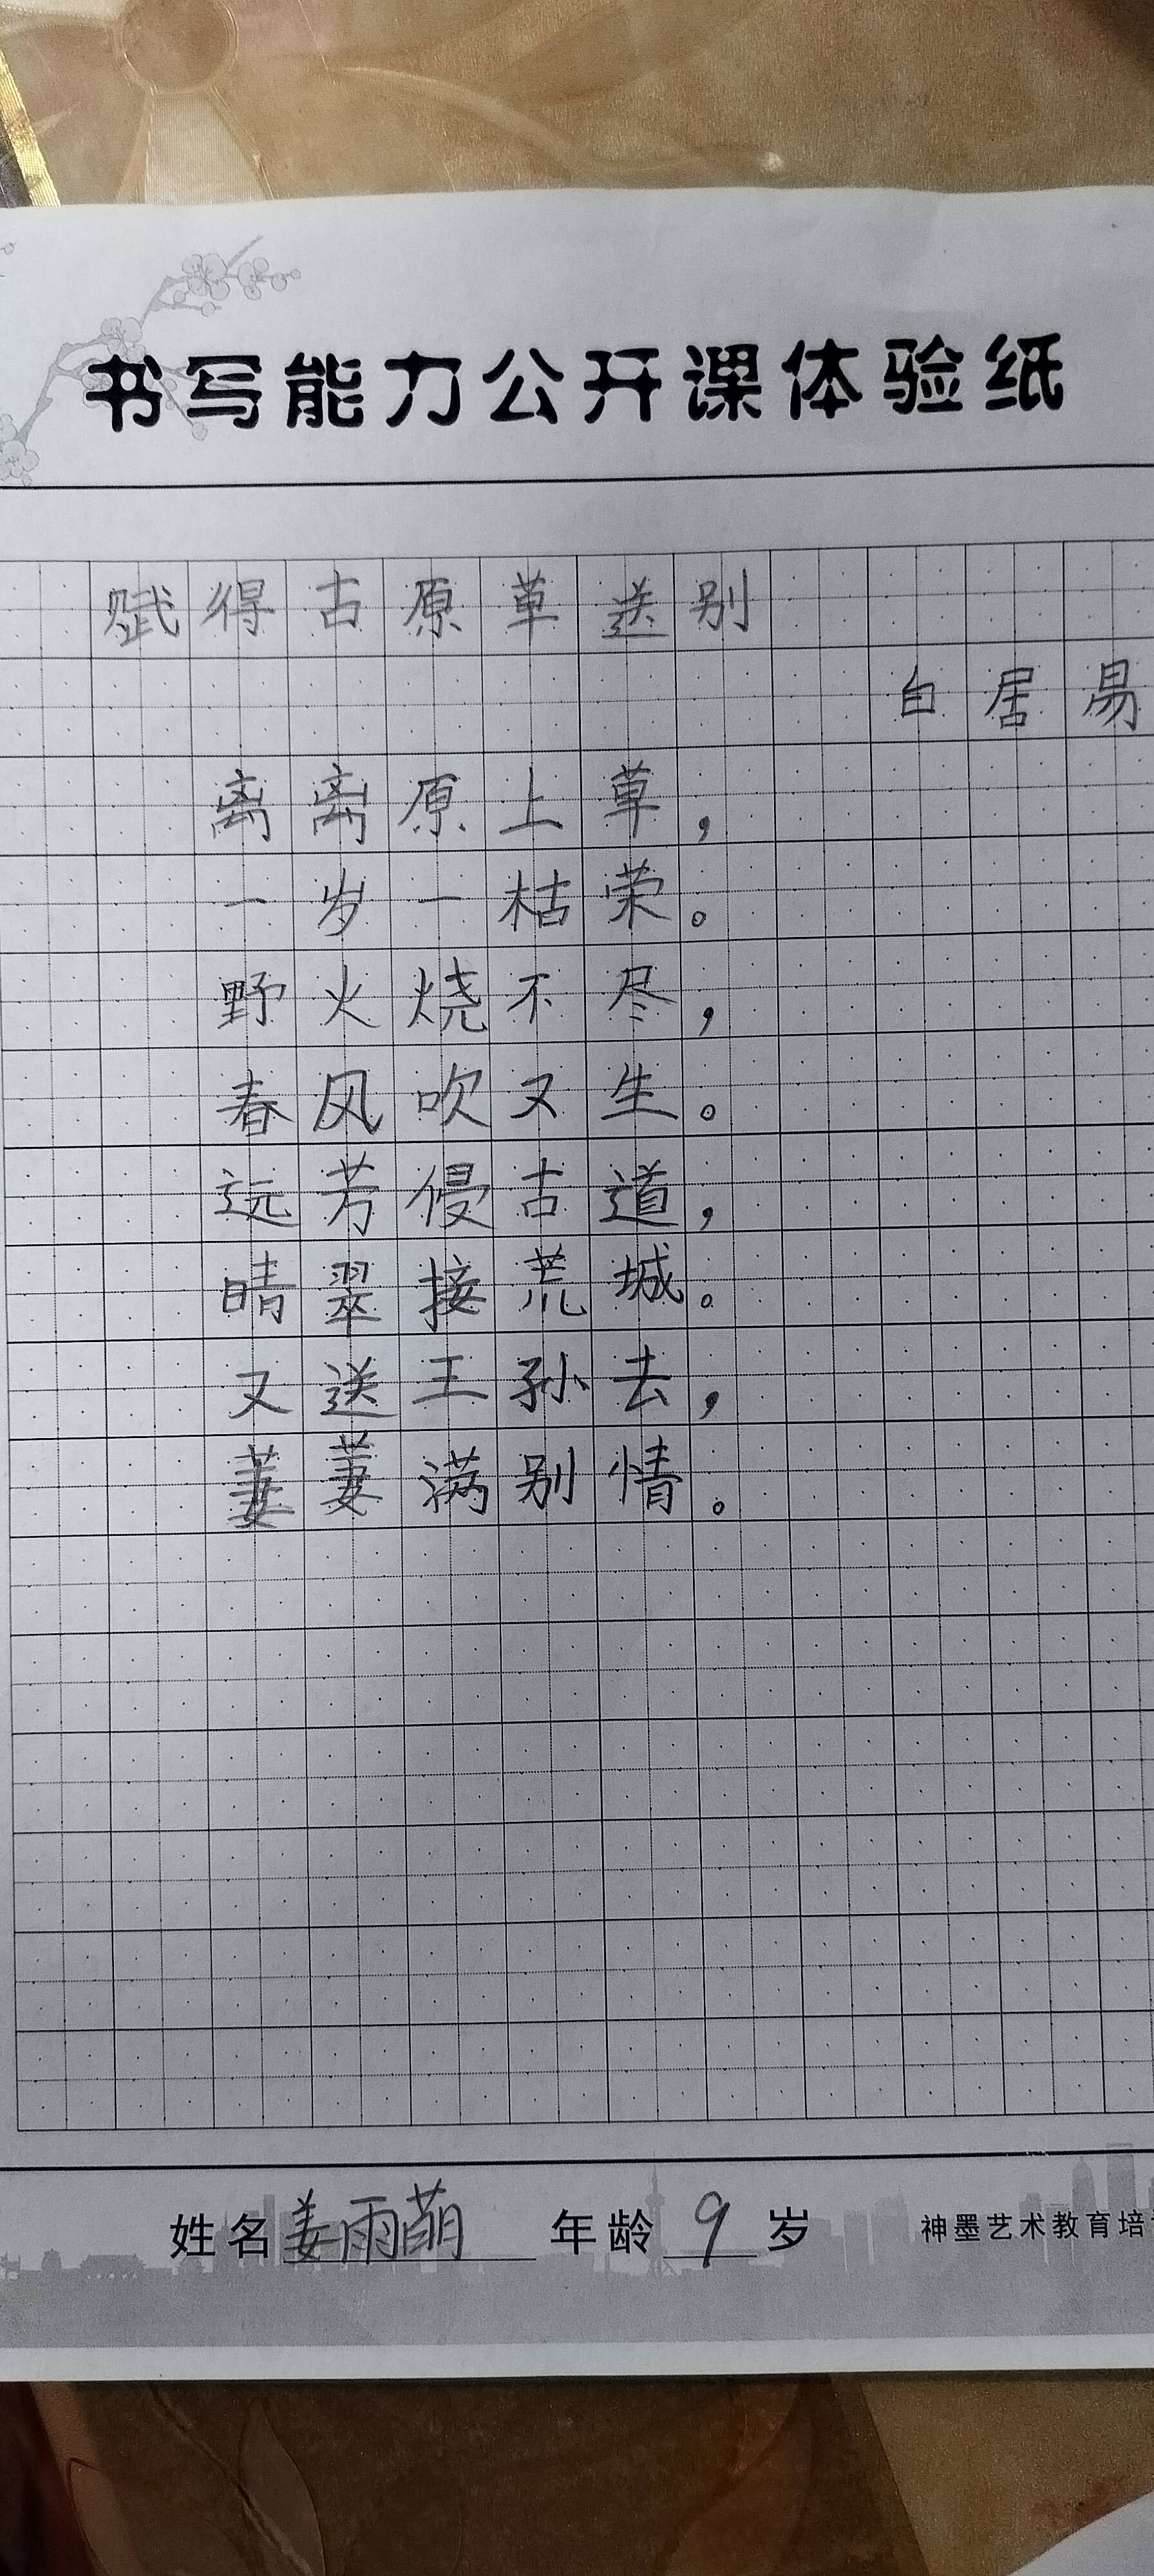 书写能力公开课体验纸
赋得古原草送别
白居易
离离原上草，
一岁一枯荣。
野火烧不尽，
春风吹又生。
远芳侵古道，
晴翠接荒城。
又送王孙去，
萋萋满别情。
姓名姜雨萌 年龄9岁 神墨艺术教育培